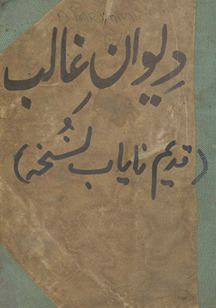 دیوانِ غالب
(قدیم نایاب نُسخہ)